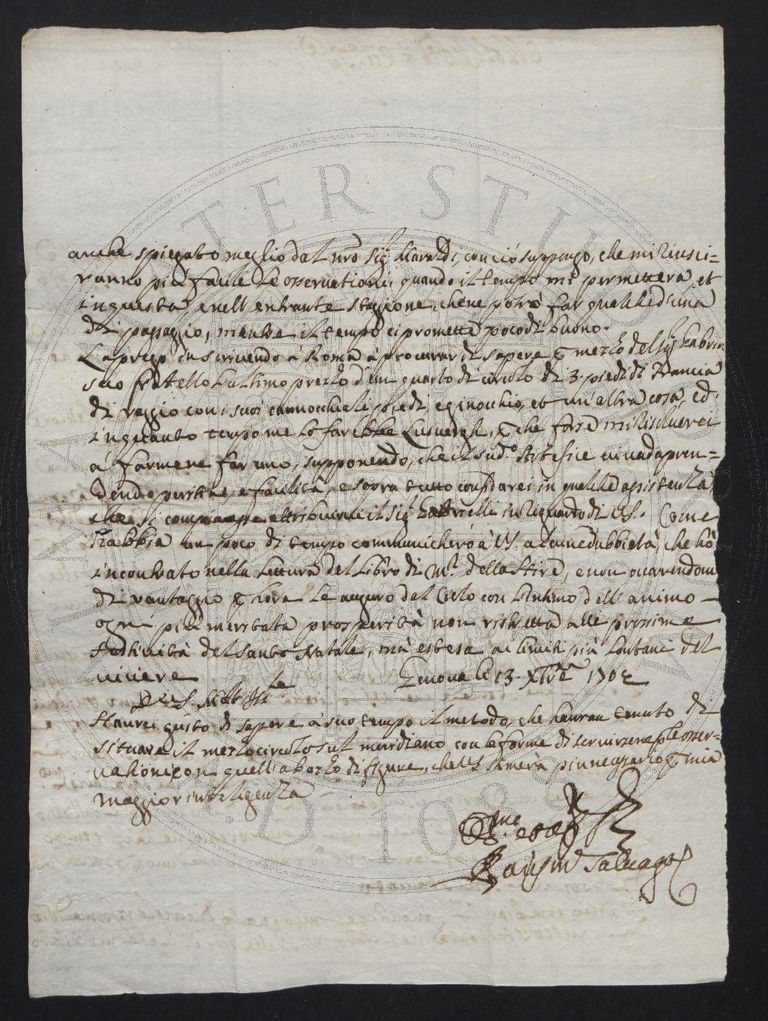 anche spiegato meglio dal nro Sig.r Maraldi, con ciò suppongo, che mi riusci=
ranno più facile le osservationi; quando il tempo me permetterà et
in questa, e nell entrante stagione, che ne potrò far qualched'una
di passaggio, mentre il tempo ci promette poco di buono.
La prego in scrivendo a Roma a procurar di sapere p mezzo del Sig.
suo fratello l'ultimo prezzo d'un quarto di circolo di 3 piedi di Francia
di raggio con i suoi cannocchiali piedi e ginocchio, et un'altra cosa, ed
in quanto tempo me lo farebbe Lusuergh, p che forse mi risolverei
a farmene far uno, supponendo, che il sud.o Artefice ci vada pren=
dendo peritia e facilità, e sopra tutto confidarei in qualche assistenza
che si compiacesse attribuirci il Sig.r in riguardo di VS. Come
habbia un poco di tempo communicherò à VS. alcune dubbietà, che hò
incontrato nella lettura del Libro di M.r della Hire, e non occorrendomi
di vantaggio p hora le auguro dal Cielo con l'intimo dell'animo
ogni più meritata prosperità non ristretta alle prossime
festività del Santo Natale, mà estesa ai limiti più lontani del
vivere Genova li 13 Xbre 1702
Di VS. Molt Ill.re
Haurei gusto di sapere a suo tempo il metodo, che hauran tenuto di
situare il mezzo circolo sul meridiano con la forma di servirsene p le osser=
vationi con quell'abozzo di figure, che VS stimerà più necessario p mia
maggior intelligenza
Salvago